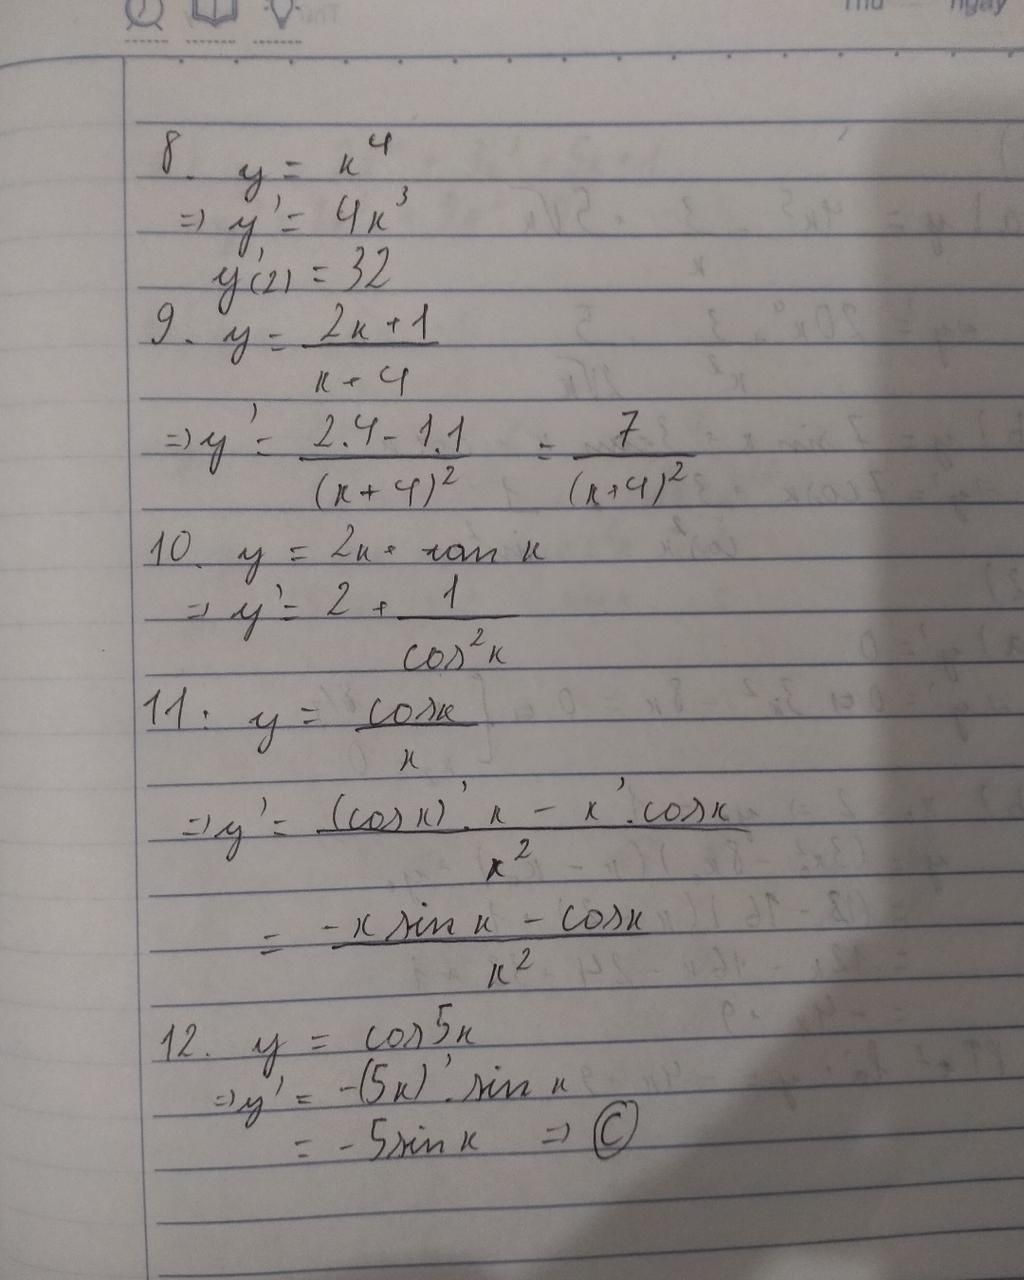 Thứ Ngày
8. y = x⁴
=> y' = 4x³
y'(2) = 32
9. y = (2x+1)/(x+4)
=> y' = (2.4-1.1)/(x+4)² = 7/(x+4)²
10. y = 2x + tan x
=> y' = 2 + 1/cos²x
11. y = cosx/x
=> y' = ((cosx)'.x - x'.cosx)/x²
= (-x sin x - cosx)/x²
12. y = cos5x
=> y' = -(5x)'.sin x
= -5sin x => Ⓒ